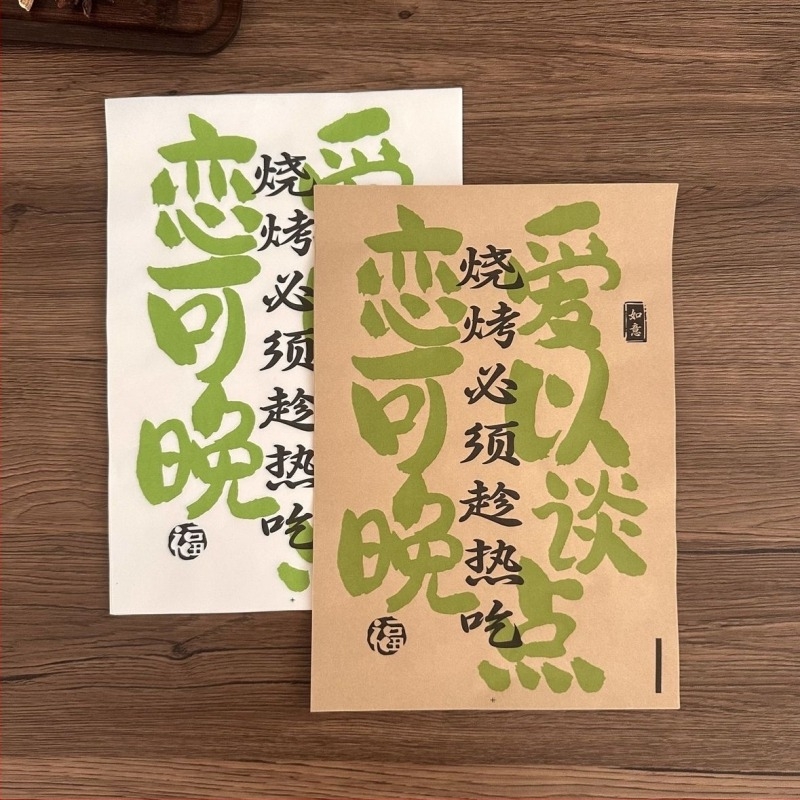 恋爱
可
晚
烧烤必须趁热吃
福
恋爱
可以
晚点谈
烧烤必须趁热吃
如意
福